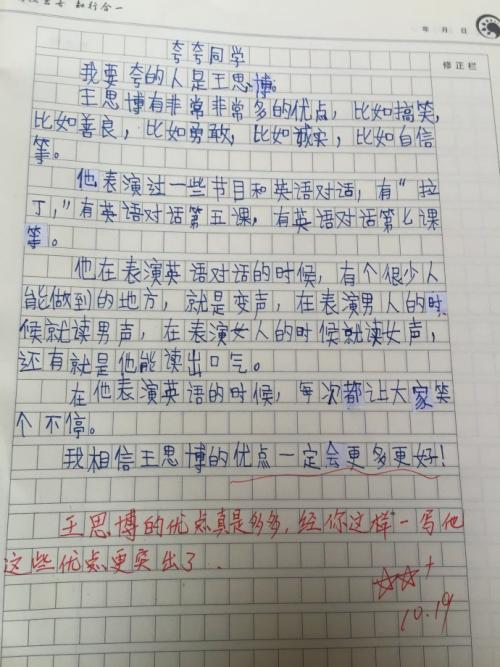 知行合一
年 月 日
修正栏
夸夸同学
我要夸的人是王思博。
王思博有非常非常多的优点，比如搞笑，
比如善良，比如勇敢，比如诚实，比如自信
等。
他表演过一些节目和英语对话，有“拉
丁，”有英语对话第五课，有英语对话第七课
等。
他在表演英语对话的时候，有个很少人
能做到的地方，就是变声，在表演男人的时
候就读男声，在表演女人的时候就读女声，
还有就是他能读出口气。
在他表演英语的时候，每次都让大家笑
个不停。
我相信王思博的优点一定会更多更好！
王思博的优点真是多多，经你这样一写他
这些优点更突出了．
☆☆+
10.19